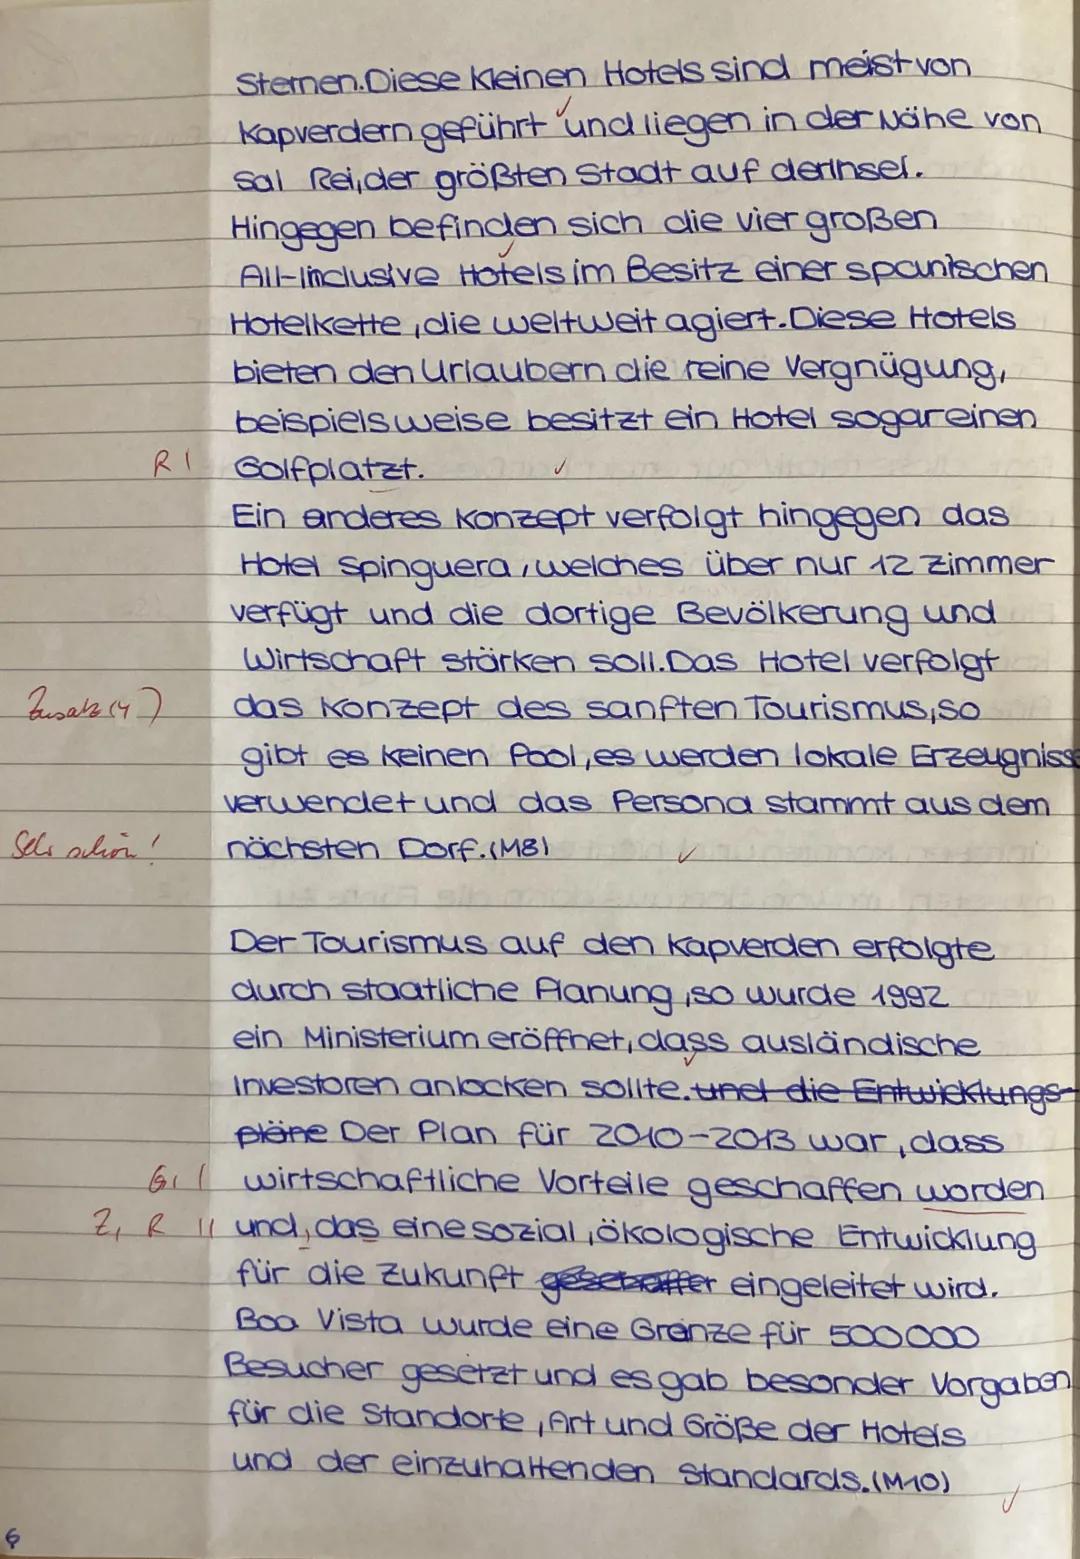 Sternen. Diese kleinen Hotels sind meist von
Kapverdern geführt und liegen in der Nähe von
Sal Rei, der größten Stadt auf der Insel.
Hingegen befinden sich die vier großen
All-Inclusive Hotels im Besitz einer spanischen
Hotelkette, die weltweit agiert. Diese Hotels
bieten den Urlaubern die reine Vergnügung,
beispielsweise besitzt ein Hotel sogar einen
R I Golfplatzt.
Ein anderes Konzept verfolgt hingegen das
Hotel Spinguera, welches über nur 12 Zimmer
verfügt und die dortige Bevölkerung und
Wirtschaft stärken soll. Das Hotel verfolgt
Zusatz (4) das Konzept des sanften Tourismus, so
gibt es keinen Pool, es werden lokale Erzeugnisse
verwendet und das Personal stammt aus dem
Sehr schön! nächsten Dorf. (M8)
Der Tourismus auf den Kapverden erfolgte
durch staatliche Planung, so wurde 1992
ein Ministerium eröffnet, dass ausländische
Investoren anlocken sollte. und die Entwicklungs-
pläne Der Plan für 2010-2013 war, dass
G, I wirtschaftliche Vorteile geschaffen worden
Z, R II und, das eine sozial, ökologische Entwicklung
für die Zukunft geschaffen eingeleitet wird.
Boa Vista wurde eine Grenze für 500 000
Besucher gesetzt und es gab besonder Vorgaben
für die Standorte, Art und Größe der Hotels
und der einzuhaltenden Standards. (M10)
6